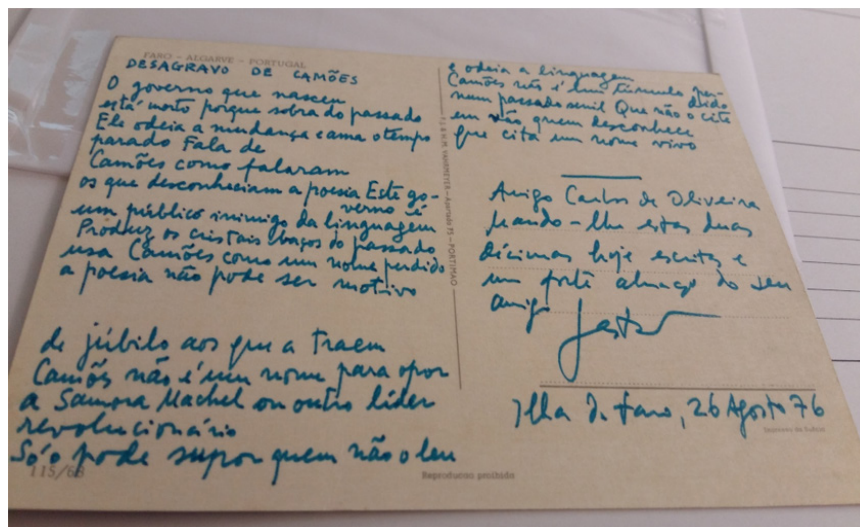 FARO - ALGARVE - PORTUGAL
DESAGRAVO DE CAMÕES
O governo que nasceu
está morto porque sobra do passado
Ele odeia a mudança e ama o tempo
parado Fala de
Camões como falaram
os que desconheciam a poesia Este go-
verno é
um público inimigo da linguagem
Produz os cristais baços do passado
usa Camões como um nome perdido
a poesia não pode ser motivo
de júbilo aos que a traem
Camões não é um nome para opor
a Samora Machel ou outro líder
revolucionário
Só o pode supor quem não o leu
e odeia a linguagem
Camões não é um túmulo per-
dido
num passado senil Que não o cite
em vão quem desconhece
que cita um nome vivo
Amigo Carlos de Oliveira
Mando-lhe estas duas
décimas hoje escritas e
um forte abraço do seu
amigo
Gastão
Ilha de Faro, 26 Agosto 76
115/68
Reproduction prohibida
PORTIMÃO